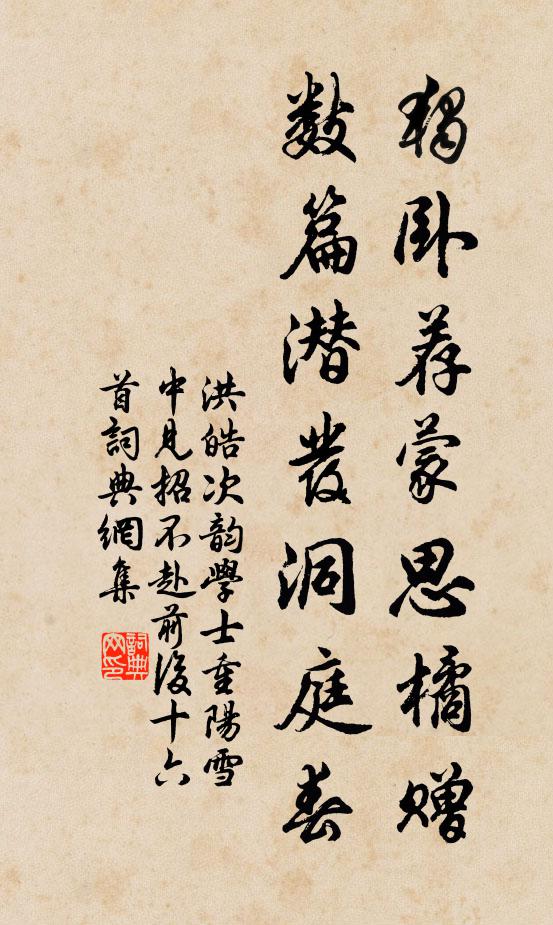 獨卧荐蒙思橘贈
數篇潜發洞庭春
洪皓次韵學士重陽雪
中見招不赴前後十六
首詞典網集
詞典
网印